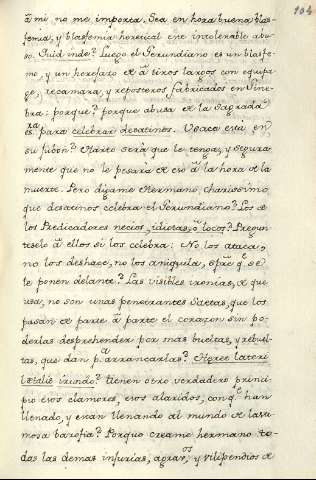 104
â mi no me importa. Sea en hora buena blas-
femia, y blasfemia heretical ese intolerable abu-
so. Quid inde? Luego el Gerundiano es un blasfe-
mo, y un herejazo de â tiros largos con equipa-
ge, recamara, y reposteros fabricados en Gine-
bra: porque? porque abusa de la sagrada
para celebrar desatinos.
su jubon? Harto será que le tenga, y segura-
mente que no le pesara de eso â la hora de la
muerte. Pero digame Hermano charissimo
que desatinos celebra el Gerundiano? Los de
los Predicadores necios, idiotas, ô locos? Pregun-
teselo â ellos si los celebra: No los ataca,
no los deshace, no los aniquila, spre qe se
le ponen delante? Las visibles ironias, de que
usa, no son unas penetrantes saetas, que los
pasan de parte â parte el corazon sin po-
derlas desprehender por mas bueltas, y rebuel-
tas, que dan pa arrancarlas? Hæret lateri
letalis arundo? tienen otro verdadero princi-
pio esos clamores, esos alaridos, con qe han
llenado, y estan llenando al mundo de lasti-
mosa barofia? Porque creame hermano to-
das las demas injurias, agravos, y vilipendios de